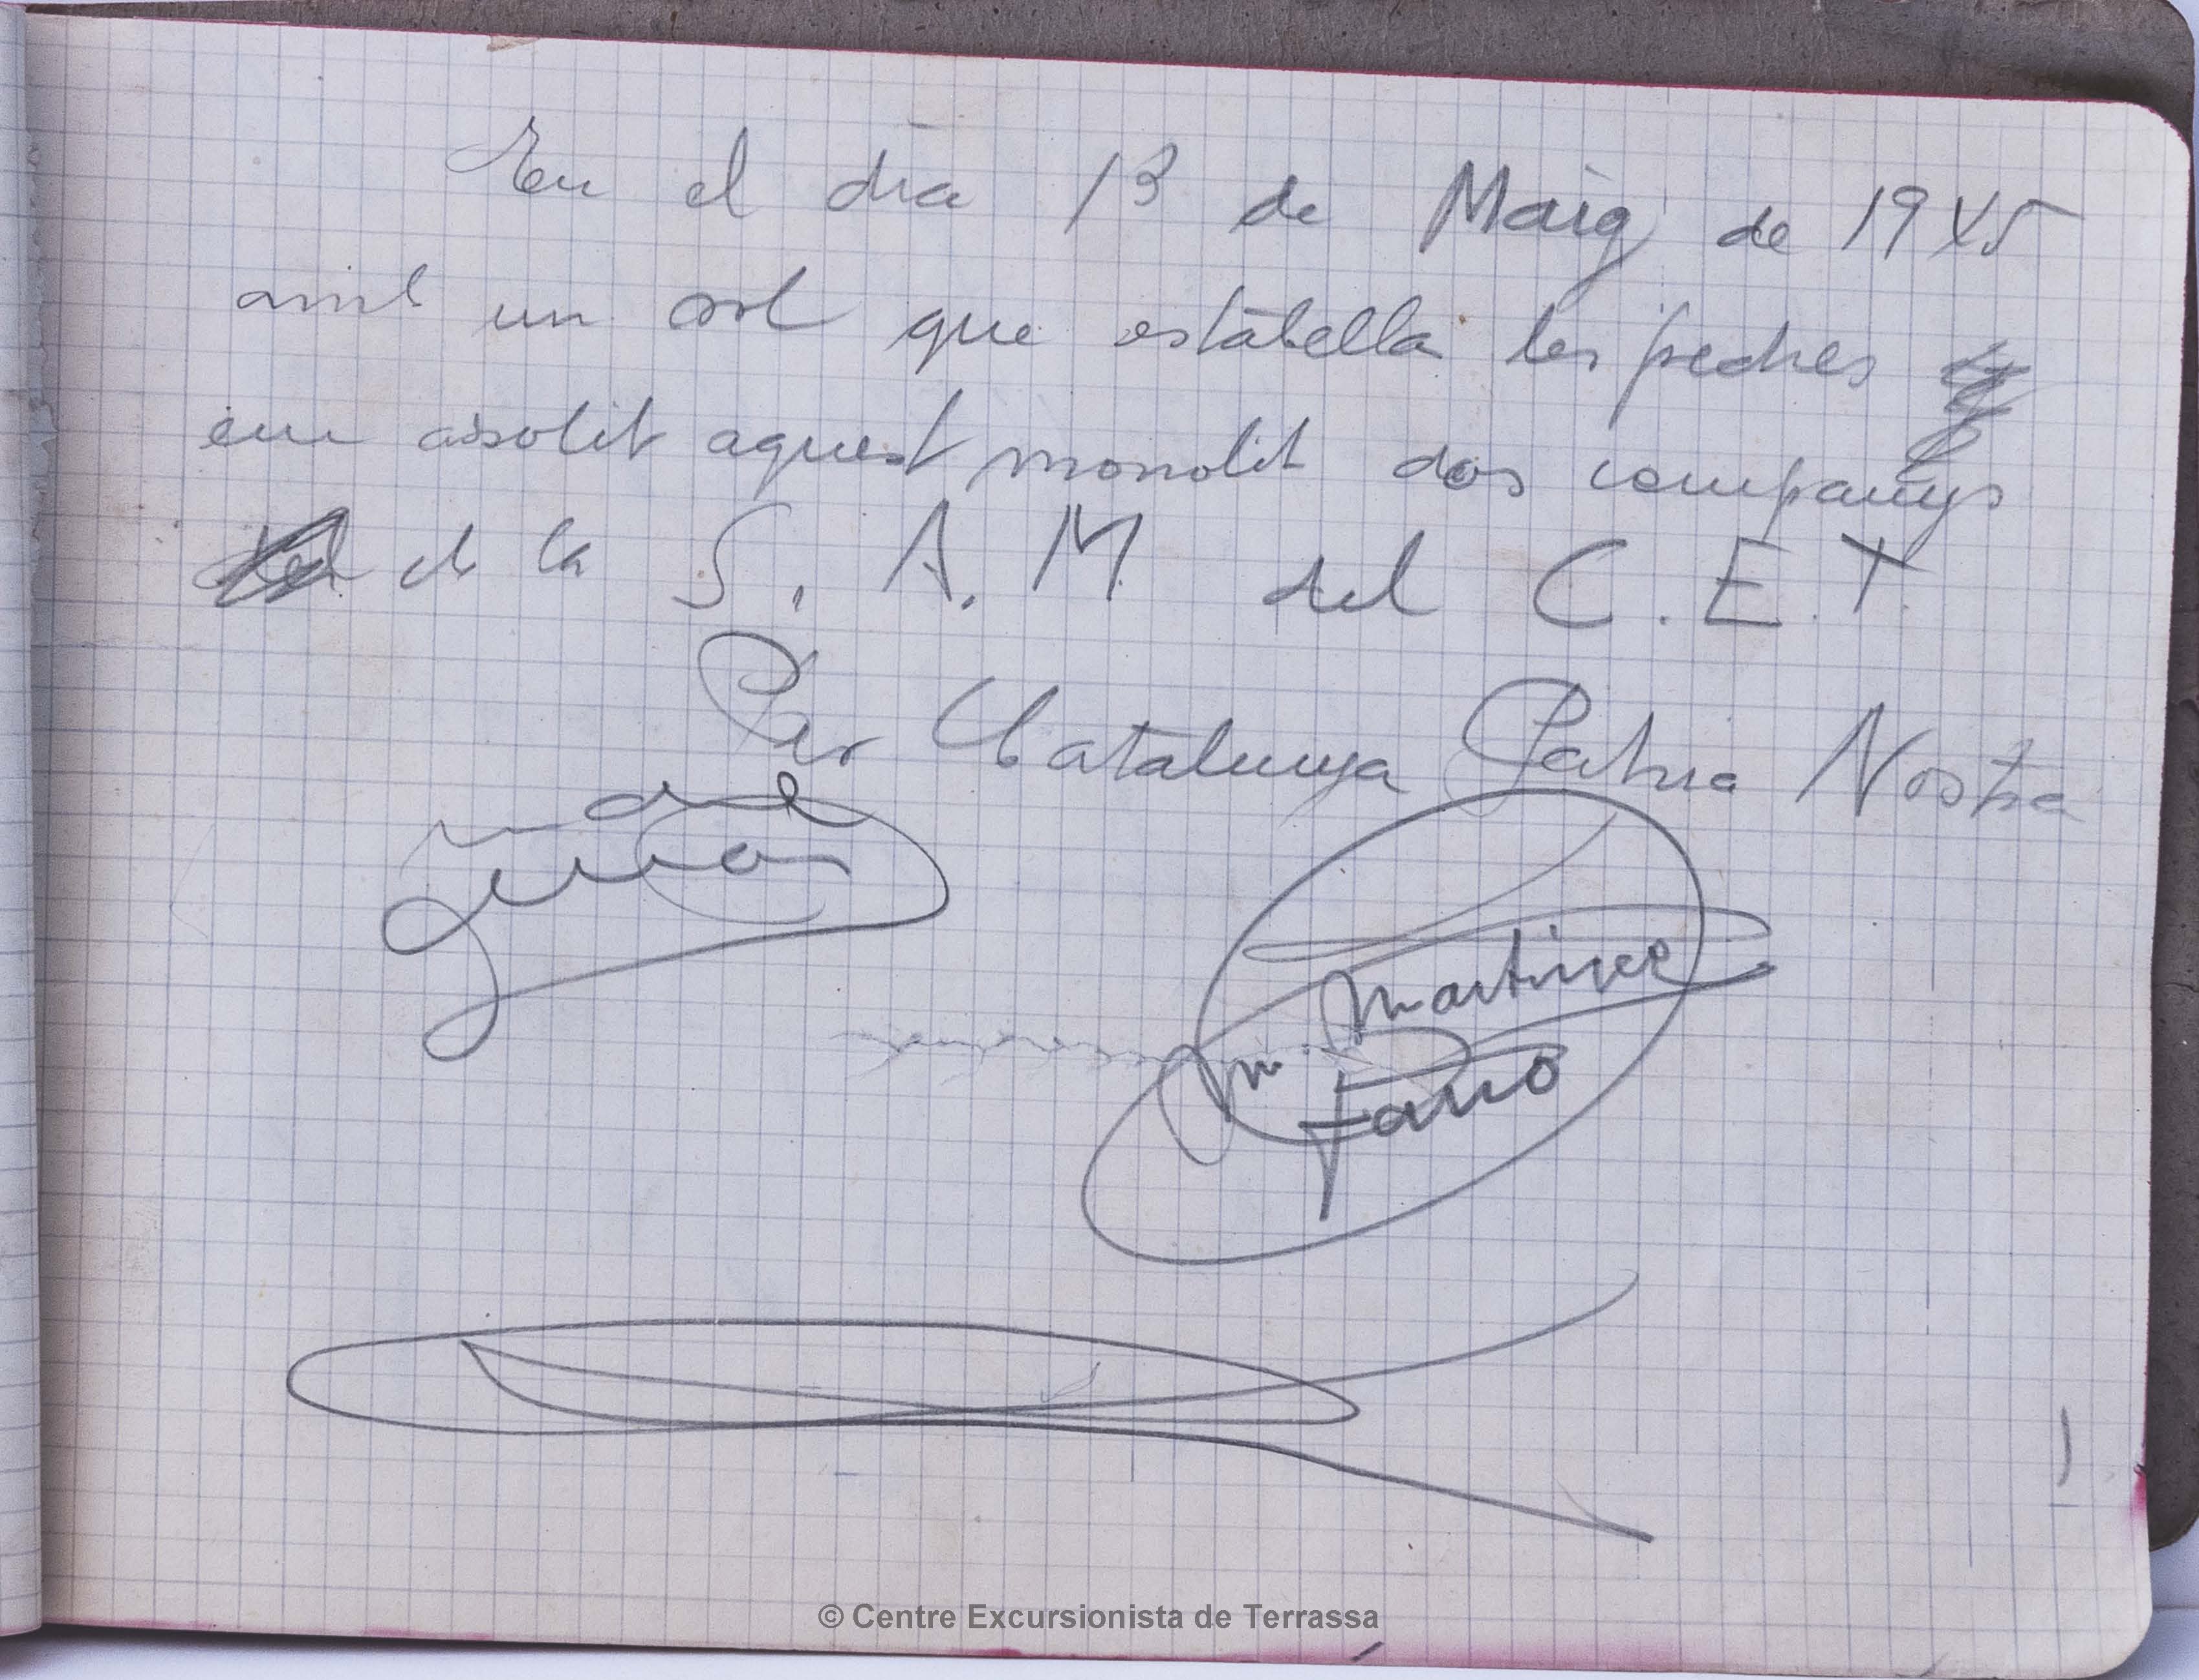 En el dia 13 de Maig de 1945
amb un sol que estabella les pedres
em assolit aquest monolit dos companys
de la S. A. M. del C. E. T.
Per Catalunya Patria Nostra
Martinez
m.
© Centre Excursionista de Terrassa